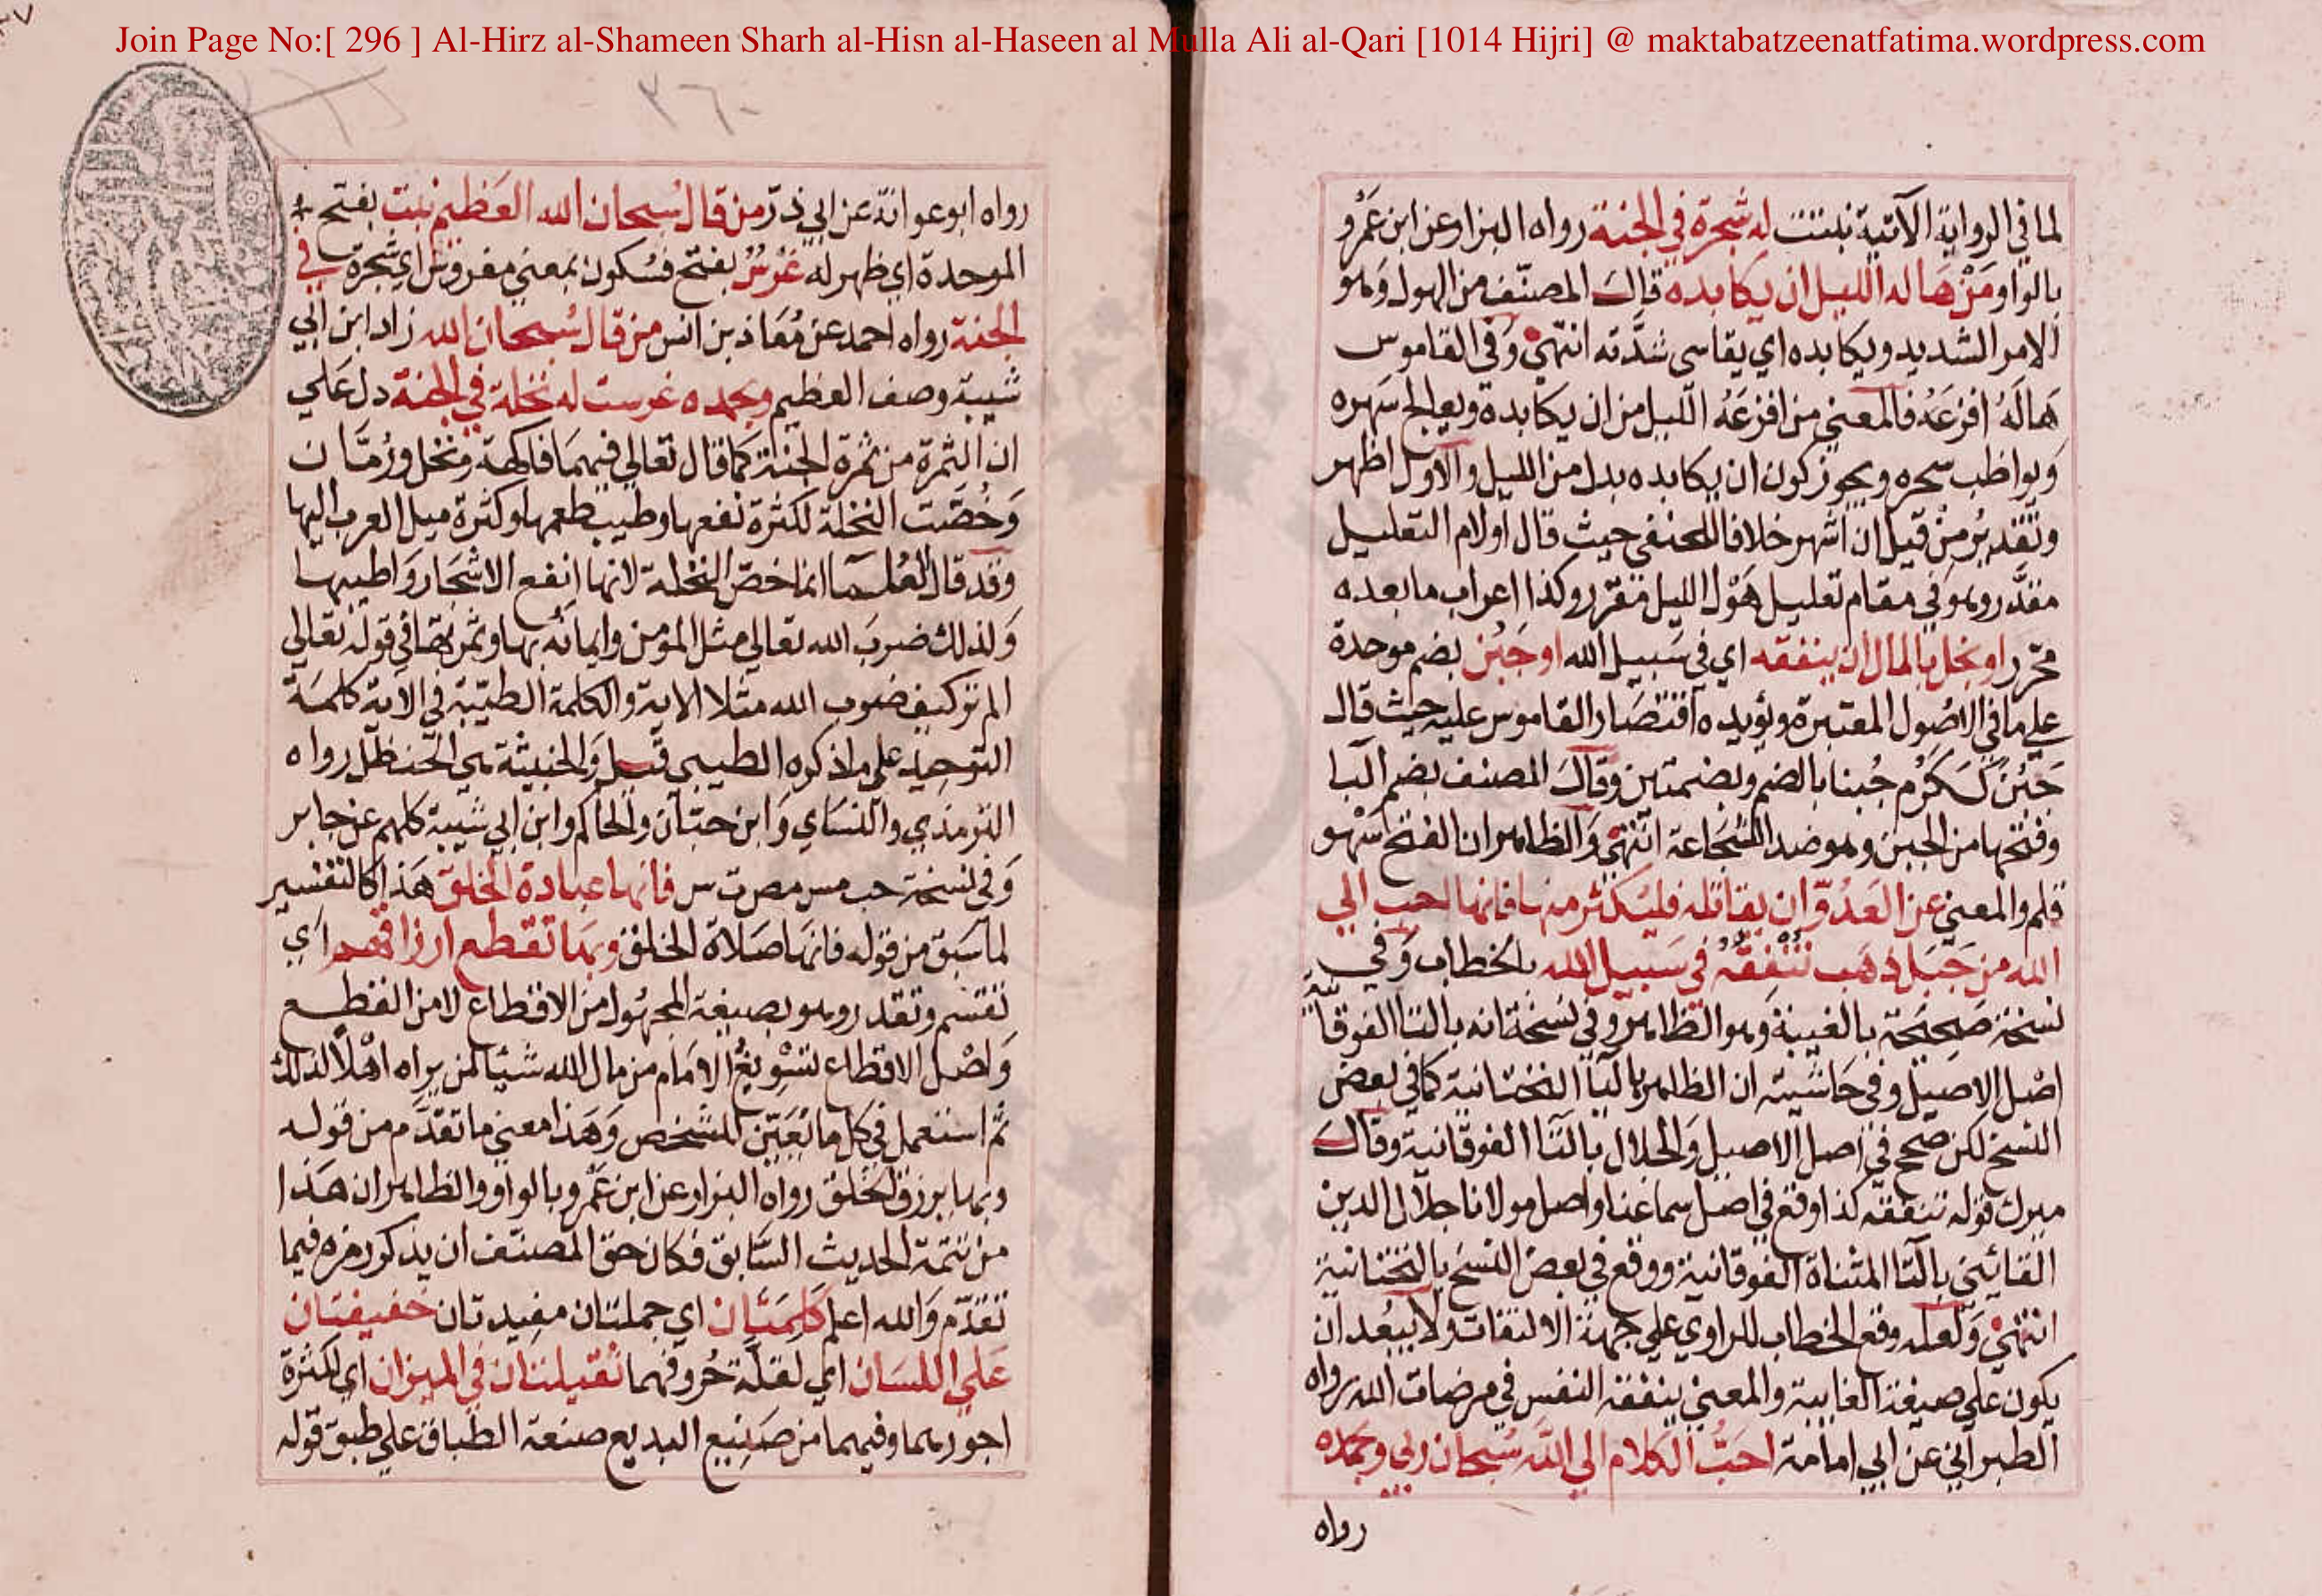 Join Page No:[ 296 ] Al-Hirz al-Shameen Sharh al-Hisn al-Haseen al Mulla Ali al-Qari [1014 Hijri] @ maktabatzeenatfatima.wordpress.com
لما في الرواية الآتية نبتت له شجرة في الجنة رواه البزار عن ابن عَمْرو
بالواو مَنْ هَاله الليل ان يكابده قال المصنّف من الهول وَهو
الامر الشديد ويكابده اي يقاسى شدَّته انتهى وَفي القاموس
هَالَهُ افزعَهُ فالمعني من افزعَهُ الليل من ان يكابده ويعالج سَهره
وَيواظب سحره ويجوز كون ان يكابده بدل من الليل والاول اظهر
وتقديرُ مِنْ قبل ان اشهر خلافا للحنفي حيث قال اولام التعليل
مقدَّر وهو في مقام تعليل هَوْل الليل مقرر وكذا اعراب ما بعده
محَرّر او بخل بالمال ان ينفقه اي في سَبيل الله او جَبُن بضم موحدة
علي ما في الاصُول المعتبرة ويؤيده اقتصَار القاموس عليه حيث قال
جَبُنَ كَكَرُم جُبنا بالضم وبضمتين وقال المصنف بضم البا
وفتحها من الجبن وهو ضد الشجَاعة انتهى وَالظاهر ان الفتح سَهو
قلم والمعني عن العَدُوّ ان يقاتله فليُكثر منها فانها احب الي
الله من جَبَل ذهَب تُنْفِقُهُ في سَبيل الله بالخطاب وَفي
نسخة صَحيحَة بالغيبة وَهو الظاهر وفي نسْخة انه بالتا الفوقانية
اصْل الاصيل وفي حَاشية ان الظاهر بالتا التحتانية كما في بعض
النسخ لكن صحح في اصل الاصيل وَالجلال بالتا الفوقانية وقال
ميرك قوله تنفقه كذا وقع في اصل سماعنا واصل مولانا جلال الدين
القائيني بالتا المثناة الفوقانية ووقع في بعض النسخ بالتحتانية
انتهى وَلعله وقع الخطاب للراوي علي جهة الالتفات ولا يبعُد ان
يكون علي صيغة الغايبة والمعني ينفقه النفس في مرضات الله رواه
الطبراني عن ابي امامة احَبُّ الكلام الي الله سُبحان ربي وبحمده
رواه
٣٦٠
رواه ابو عوانة عن ابي ذرّ من قال سُبحان الله العَظيم نبت بفتح
الموحدة اي ظهر له غَرْسٌ بفتح فسُكون بمعني مغروس اي شجرة في
الجنة رواه احمد عن مُعَاذ بن انس من قال سُبحَان الله زاد ابن ابي
شيبة وصف العظيم وبحمده غرست له نخلة في الجنة دل عَلي
ان الثمرة من ثمرة الجنة كما قال تعالي فيهمَا فاكهة ونخل ورُمّان
وَخُصّت النخلة لكثرة نفعها وطيب طعمها وكثرة ميل العرب اليها
وقد قال العُلما انما خصّ النخلة لانها انفع الاشجَار وَاطيبها
وَلذلك ضربَ الله تعالي مثل المؤمن وايمانه بها وثمرتها في قوله تعالي
الم تر كيف ضرب الله مثلا الاية والكلمة الطيّبة في الاية كلمة
التوحيد علي ما ذكره الطيبي قيل وَالخبيثة هي الحنظل رواه
الترمذي والنسَاي وَابن حبّان والحاكم وابن ابي شيبة كلهم عن جابر
وَفي نسخة حب مس مص ت س فانها عبادة الخلق هَذا كالتفسير
لما سَبق من قوله فانهَا صَلاة الخلق وبهَا تقطع ارزاقهم اي
تقسّم وتقدر وهو بصيغة المجهُول من الاقطاع لا من القطع
وَاصْل الاقطاع تسْويغُ الامَام من مال الله شيئا لمن يراه اهْلا لذلك
ثم استعمل في كل ما يُعَيّن للشخص وَهَذا معني ما تقدَّم من قوله
وبها يرزق الخلق رواه البزار عن ابن عَمْرو بالواو والظاهر ان هَذا
من تتمة الحديث السَّابق فكان حق المصنّف ان يذكر رمزه فيما
تقدّم وَالله اعلم كَلِمَتَان اي جملتان مفيدتان خفيفتان
عَلي اللسَان اي لقلّة حُروفهما ثقيلتان في الميزان اي لكثرة
اجورهما وفيهما من صَنيع البديع صنعة الطباق علي طبق قوله